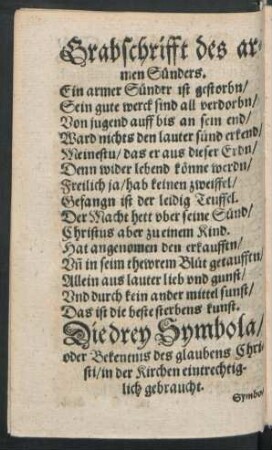 Grabschrifft des ar-
men Sünders.
Ein armer Sünder ist gestorbn/
Sein gute werck sind all verdorbn/
Von jugend auff bis an sein end/
Ward nichts den lauter sünd erkend/
Meinestu/ das er aus dieser Erdn/
Denn wider lebend könne werdn/
Freilich ja/ hab keinen zweiffel/
Gefangn ist der leidig Teuffel.
Der Macht hett vber seine Sünd/
Christus aber zu einem Kind.
Hat angenomen den erkaufftn/
Vñ in seim thewrem Blüt getaufftn/
Allein aus lauter lieb vnd gunst/
Vnd durch kein ander mittel sunst/
Das ist die beste sterbens kunst.
Die drey Symbola/
oder Bekentnis des glaubens Chri-
sti/ in der Kirchen eintrechtig-
lich gebraucht.
Symbo-